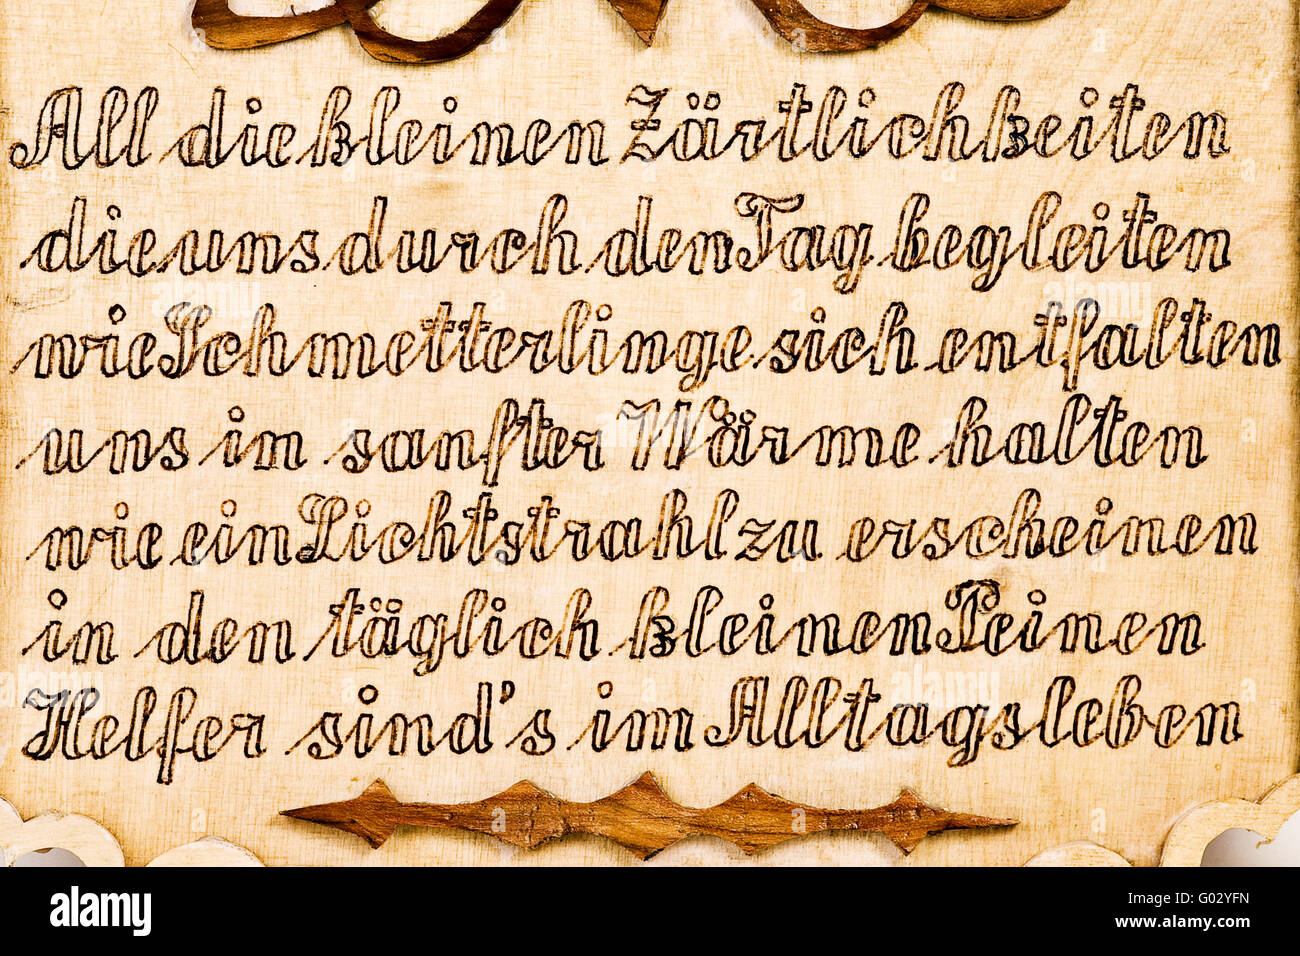 All die kleinen Zärtlichkeiten
die uns durch den Tag begleiten
wie Schmetterlinge sich entfalten
uns in sanfter Wärme halten
wie ein Lichtstrahl zu erscheinen
in den täglich kleinen Peinen
Helfer sind's im Alltagsleben
alamy
Image ID: G02YFN
www.alamy.com